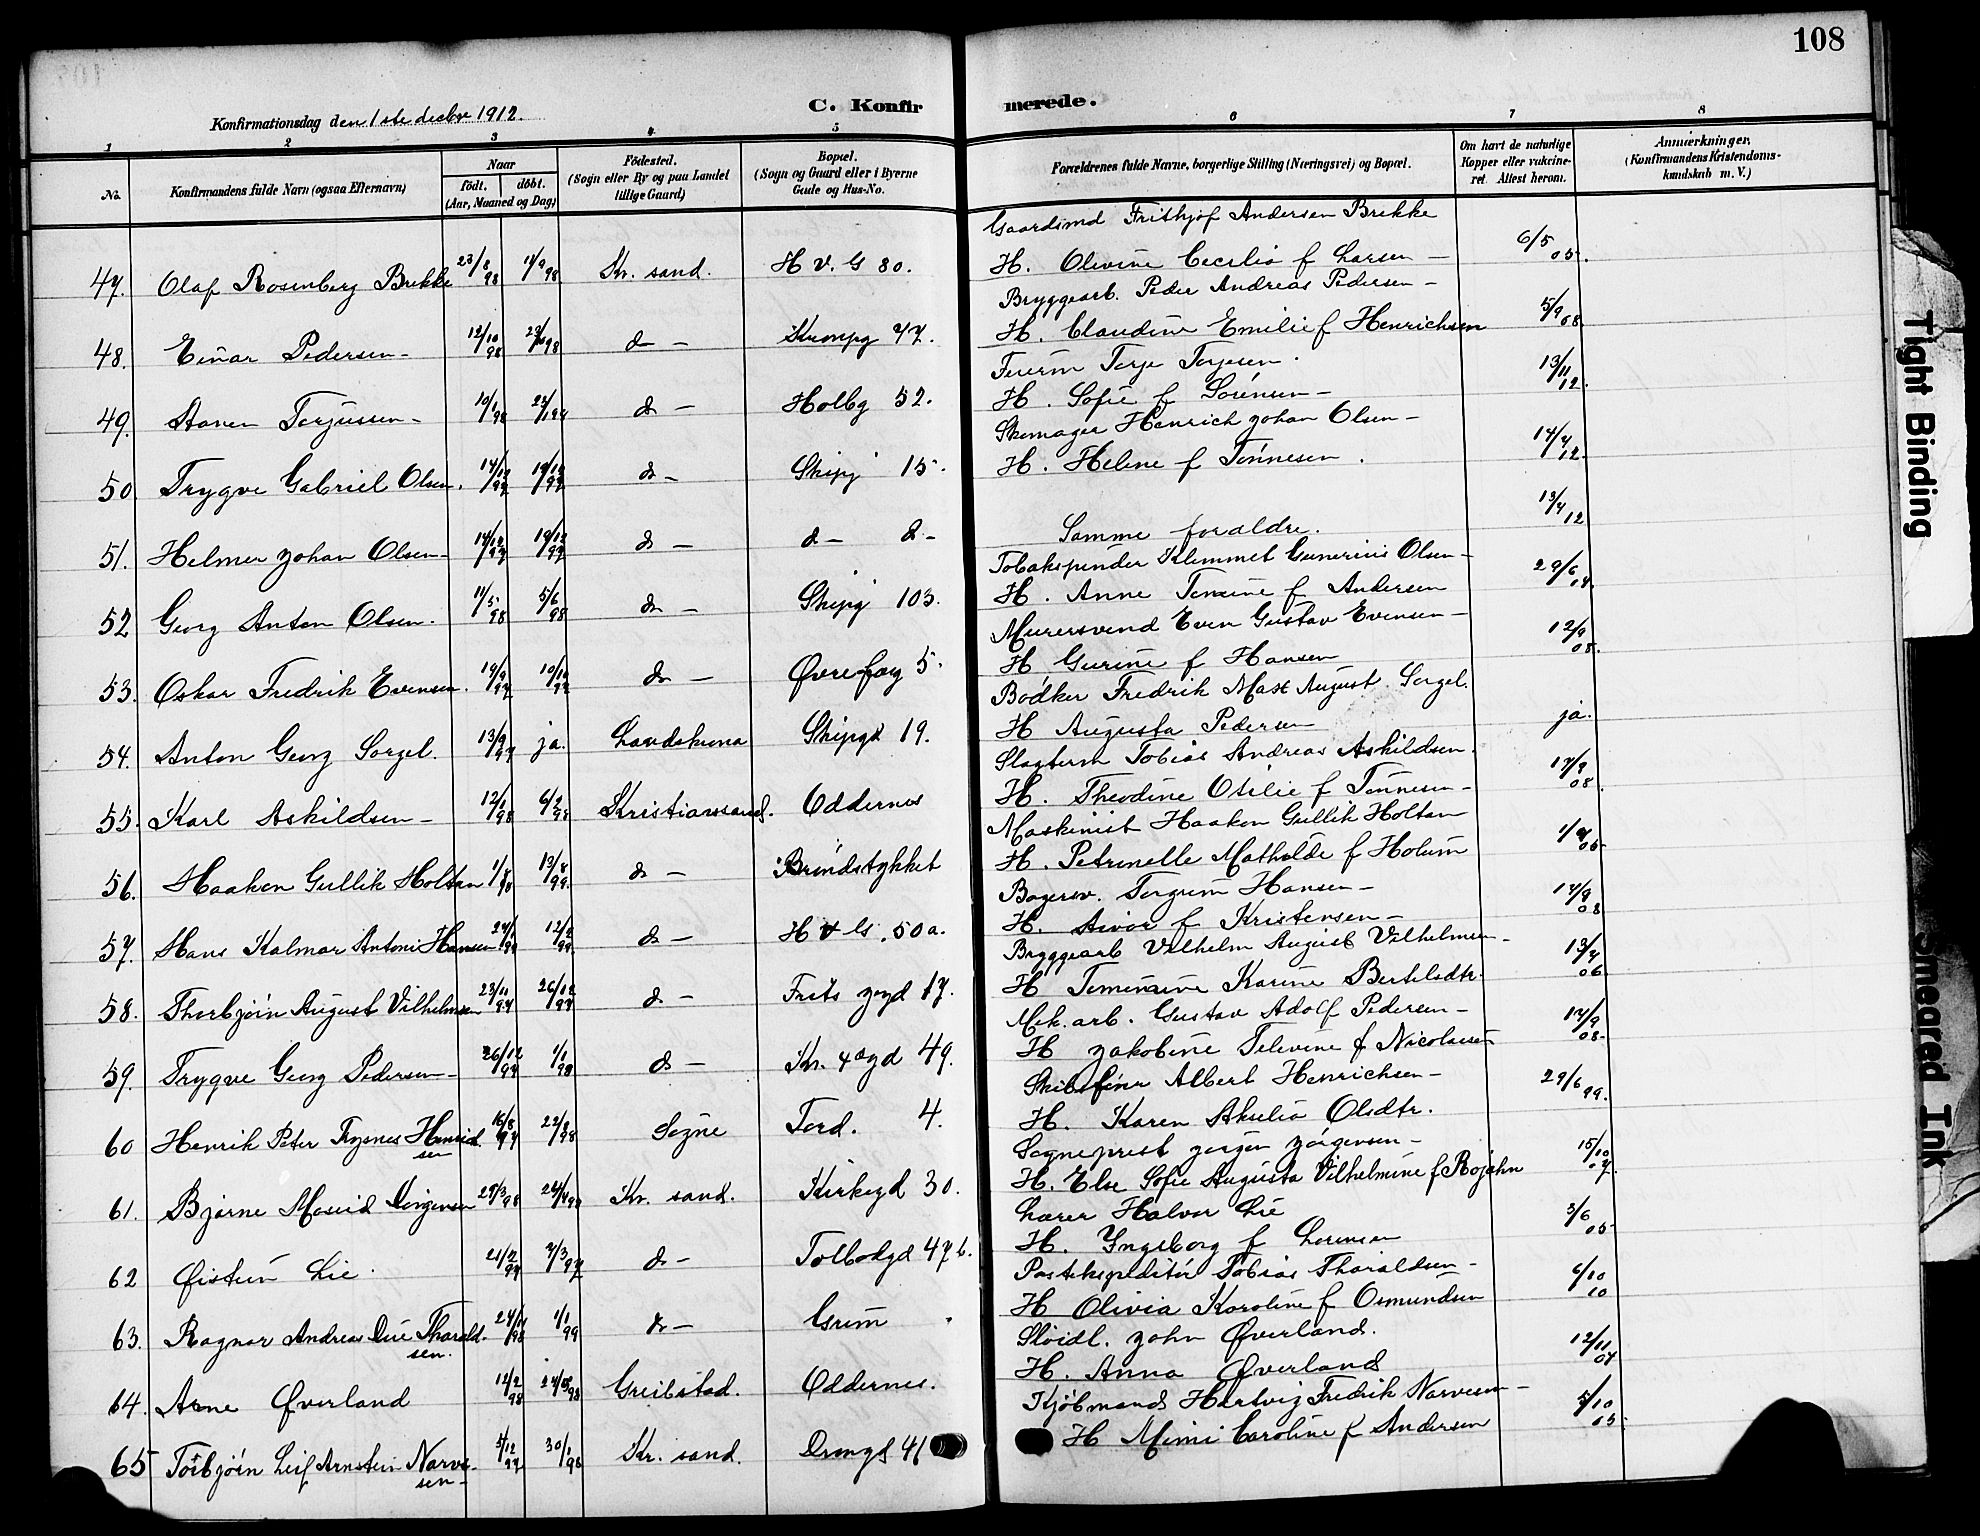 108
C. Konfirmerede.
Konfirmationsdag den 1ste decbr 1912.
1 2 3 4 5 6 7 8
No. Konfirmandens fulde Navn (ogsaa Efternavn) Naar født. døbt. (Aar, Maaned og Dag) Födested. (Sogn eller By og paa Landet tillige Gaard) Bopæl. (Sogn og Gaard eller i Byerne Gade og Hus-No. Forældrenes fulde Navne, borgerlige Stilling (Næringsvei) og Bopæl. Om havt de naturlige Kopper eller vakcineret. Attest herom. Anmærkninger. (Konfirmandens Kristendomskundskab m. V.)
Gaardsmd Frithjof Andersen Brekke
47. Olaf Rosenberg Brekke 23/8 98 11/9 98 Kr. sand. H. V. G 80. H. Olivine Cecilia f Larsen — 6/5 05.
Bryggearb. Peder Andreas Pedersen —
48. Einar Pedersen — 12/10 98 d — 47. H. Claudine Emilie f Henrichsen 5/9 08
Terje Terjesen.
49. Terjussen — 10/1 98 d — Holbg 52. H. Sofie f Sørensen — 13/11 12.
Skomager Henrich Johan Olsen —
50 Trygve Gabriel Olsen. 14/12 97 19/12 97 d — Skipg 15. H. Helene f Tønnesen. 14/4 12.
51. Helmer Johan Olsen — 14/12 97 19/12 97 d — d — d — Samme forældre. 13/4 12
Tobakspinder Klemmet Gunerius Olsen —
52 Georg Anton Olsen. 11/5 98 5/6 98 d — Skipg 103. H. Anne Tomine f Andersen 29/6 04.
Murersvend Even Gustav Evensen —
53. Oskar Fredrik Evensen. 19/9 97 10/10 97 d — Øvre 5. H Gurine f Hansen 12/9 08.
Bødker Fredrik Max August Sorgel.
54. Anton Georg Sorgel. 13/9 97 ja. Landskrona Skipgd 19. H Augusta Pedersen ja.
Slagterm Tobias Andreas Askildsen.
55. Karl Askildsen — 12/1 98 6/2 98 Kristianssand. Oddernes H. Theodine Otilie f Tønnesen — 17/9 08.
Maskinist Haaken Gullik Holtan
56. Haaken Gullik Holtan 13/8 99. d — Brøndstykket H. Petrinelle Mathilde f Holum 05
Bagersv. Torgrim Hansen —
57. Hans Kalmar Antoni Hansen 12/2 99. d — H V G. 50a. H. f Kristensen — 17/9 08
Bryggearb Vilhelm August Vilhelmsen —
58. Thorbjørn August Vilhelmsen 23/11 97 26/12 97 d — Frits 17. H Karine Bertelsdtr. 13/9 06
Mek. arb. Gustav Adolf Pedersen —
59. Trygve Georg Pedersen — 26/12 97 1/1 98 d — Kr. 4 gd 49. H Jakobine Televine f Nicolaisen 17/9 08.
Albert Henrichsen —
60 Henrik Peter Trysnes Henrichsen 16/8 97 Søgne Tord. 4. H. Karen Olsdtr. 29/6 99.
Sogneprest Jørgen Jørgensen —
61. Bjarne Jørgensen 29/3 98 24/4 98 Kr. sand. Kirkegd 30. H. Else Sofie Augusta Vilhelmine f Rojahn 15/10 07.
Lærer Halvor Lie
62 Øistein Lie. 21/2 97 7/3 97 d — Tolbodgd 47 b. H. Yngeborg f Lorensen 3/6 05
Postekspeditør Tobias Tharaldsen —
63. Ragnar Andreas Tharaldsen. 24/11 98 1/1 99 d — Grim H Olivia Karoline f Osmundsen 6/10 10
Sløidl. John Øverland.
64. Arne Øverland 12/2 98 Greibstad. Oddernes. H. Anna Øverland 12/11 04
Kjøbmand Hartvig Fredrik Narvesen —
65 Torbjørn Leif Arnstein Narvesen — 5/12 97 30/1 98 Kr. sand. Drongd 41 H Mimi Caroline f Andersen 5/10 05
Tight Binding
Smeared Ink